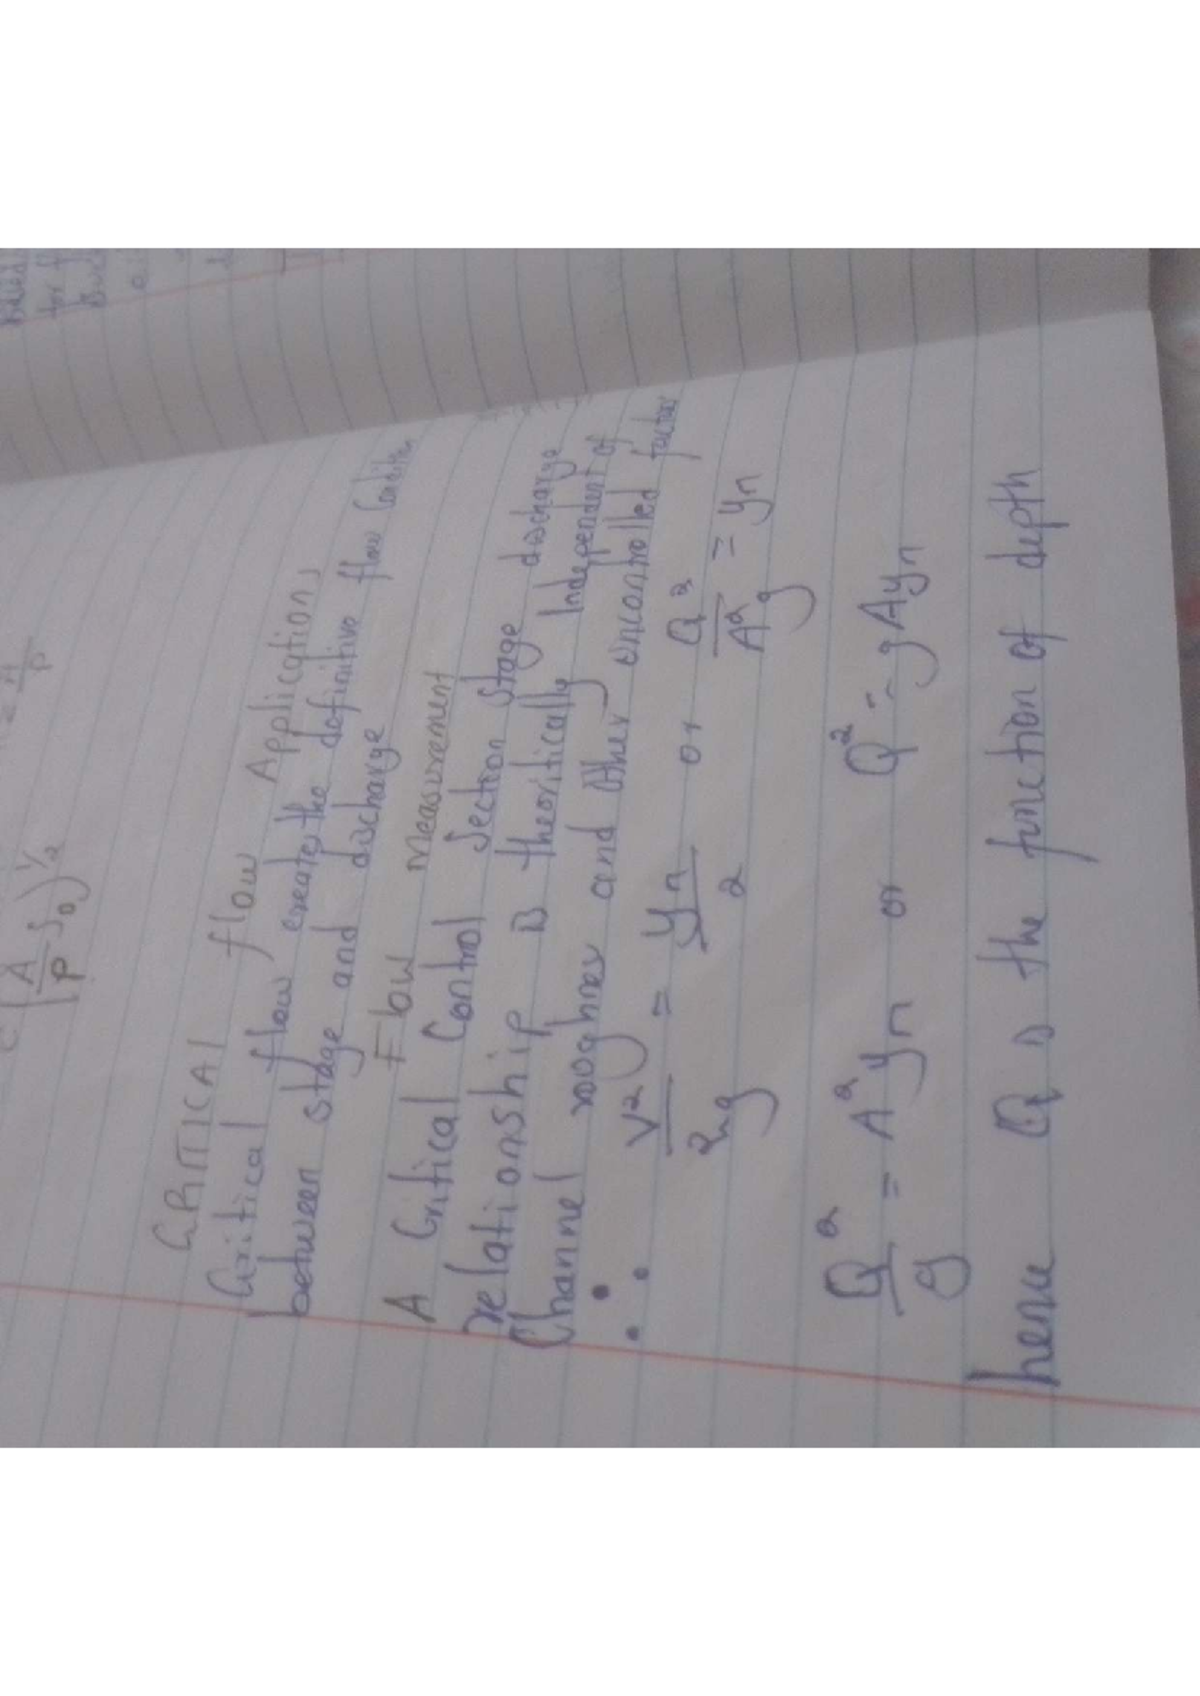 A
P
(A/P S0)^1/2
CRITICAL flow Applications
Critical flow creates the definitive flow Condition
between stage and discharge
Flow Measurement
A Critical Control Section stage discharge
relationship is theoritically Independent of
Channel roughness and other uncontrolled factors
∴ V²/2g = yn/2 or Q²/A²g = yn
Q²/g = A²yn or Q² = gAyn
hence Q is the function of depth